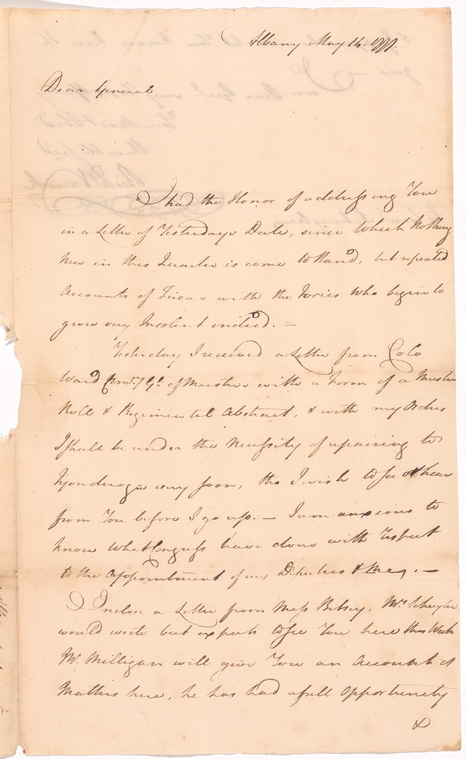 Albany May 14. 1777.
Dear General
I had the Honor of addressing You
in a Letter of Yesterdays Date, since which Nothing
New in this Quarter is come to Hand, but repeated
Accounts of with the Tories who begin to
grow very Insolent indeed. —
Yesterday I received a Letter from Colo
Ward of Musters with a Form of a Muster
Roll & Regimental Abstract, & with my Orders
I shall be under the Necessity of repairing to
Tyonderoga very soon, tho I wish to see or hear
from You before I go up. — I am anxious to
know what Congress have done with respect
to the Appointment of my Deputies & Pay. —
I inclose a Letter from Miss Betsey, Mrs. Schuyler
would write but expects to see You here this Week
Mr. Milligan will give You an Account of
Matters here, he has had a full Opportunity
&